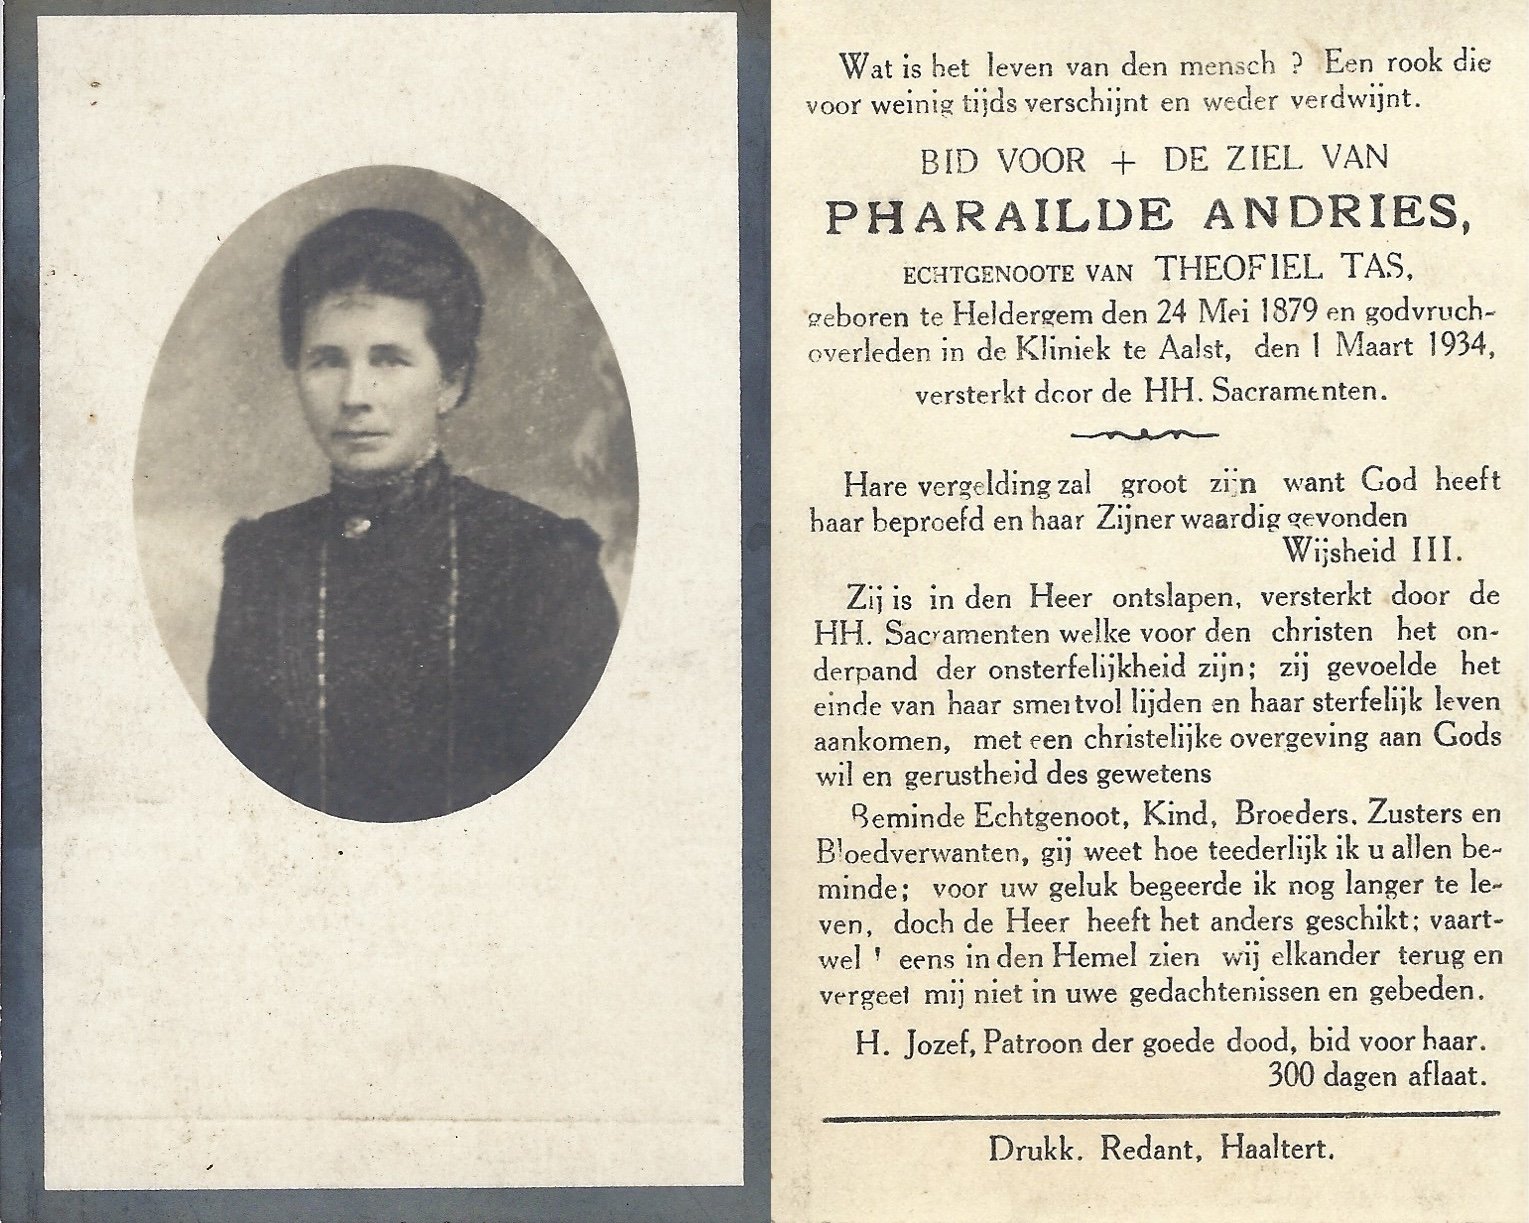 Wat is het leven van den mensch ? Een rook die
voor weinig tijds verschijnt en weder verdwijnt.
BID VOOR + DE ZIEL VAN
PHARAILDE ANDRIES,
ECHTGENOOTE VAN THEOFIEL TAS,
geboren te Heldergem den 24 Mei 1879 en godvruch-
overleden in de Kliniek te Aalst, den 1 Maart 1934,
versterkt door de HH. Sacramenten.
Hare vergelding zal groot zijn want God heeft
haar beproefd en haar Zijner waardig gevonden
Wijsheid III.
Zij is in den Heer ontslapen, versterkt door de
HH. Sacramenten welke voor den christen het on-
derpand der onsterfelijkheid zijn; zij gevoelde het
einde van haar smertvol lijden en haar sterfelijk leven
aankomen, met een christelijke overgeving aan Gods
wil en gerustheid des gewetens
Beminde Echtgenoot, Kind, Broeders, Zusters en
Bloedverwanten, gij weet hoe teederlijk ik u allen be-
minde; voor uw geluk begeerde ik nog langer te le-
ven, doch de Heer heeft het anders geschikt; vaart-
wel ! eens in den Hemel zien wij elkander terug en
vergeet mij niet in uwe gedachtenissen en gebeden.
H. Jozef, Patroon der goede dood, bid voor haar.
300 dagen aflaat.
Drukk. Redant, Haaltert.